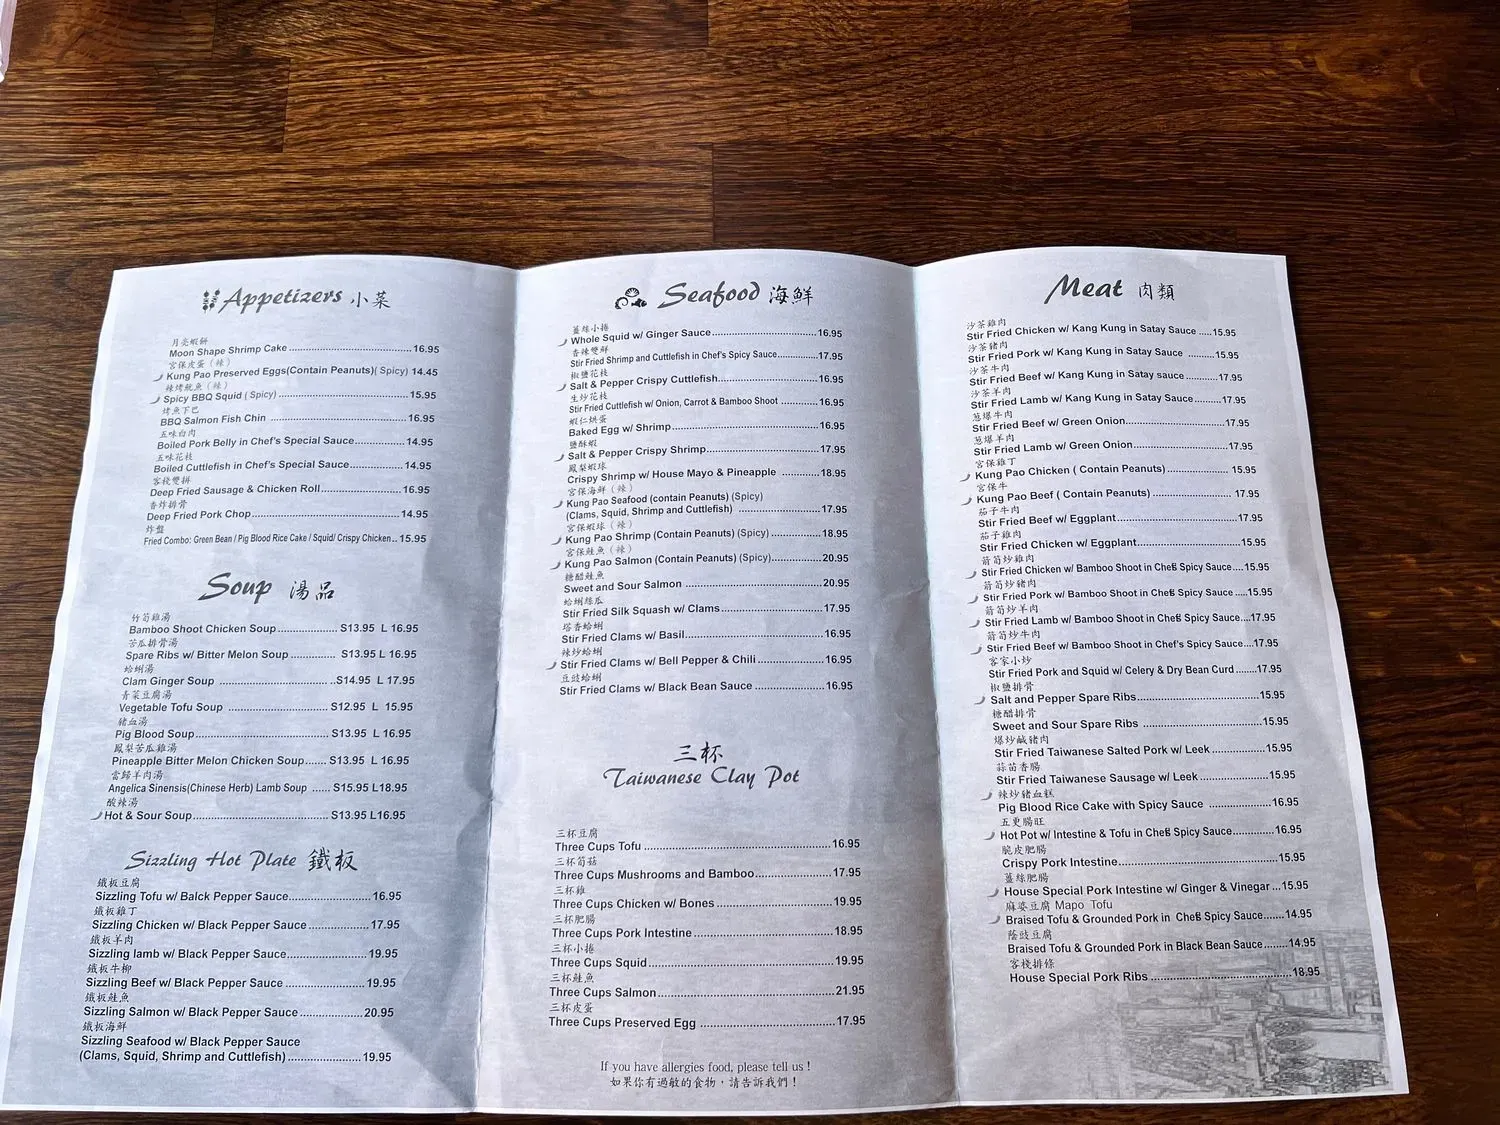 Appetizers 小菜
月亮蝦餅
Moon Shape Shrimp Cake ........ 16.95
宮保皮蛋（辣）
Kung Pao Preserved Eggs(Contain Peanuts)( Spicy) 14.45
辣烤魷魚（辣）
Spicy BBQ Squid ( Spicy) ........ 15.95
烤魚下巴
BBQ Salmon Fish Chin ........ 16.95
五味白肉
Boiled Pork Belly in Chef's Special Sauce ........ 14.95
五味花枝
Boiled Cuttlefish in Chef's Special Sauce ........ 14.95
客棧雙拼
Deep Fried Sausage & Chicken Roll ........ 16.95
香炸排骨
Deep Fried Pork Chop ........ 14.95
炸盤
Fried Combo: Green Bean / Pig Blood Rice Cake / Squid/ Crispy Chicken .. 15.95
Soup 湯品
竹筍雞湯
Bamboo Shoot Chicken Soup ........ S13.95 L 16.95
苦瓜排骨湯
Spare Ribs w/ Bitter Melon Soup ........ S13.95 L 16.95
蛤蜊湯
Clam Ginger Soup ........ S14.95 L 17.95
青菜豆腐湯
Vegetable Tofu Soup ........ S12.95 L 15.95
豬血湯
Pig Blood Soup ........ S13.95 L 16.95
鳳梨苦瓜雞湯
Pineapple Bitter Melon Chicken Soup ...... S13.95 L 16.95
當歸羊肉湯
Angelica Sinensis(Chinese Herb) Lamb Soup ...... S15.95 L18.95
酸辣湯
Hot & Sour Soup ........ S13.95 L16.95
Sizzling Hot Plate 鐵板
鐵板豆腐
Sizzling Tofu w/ Balck Pepper Sauce ........ 16.95
鐵板雞丁
Sizzling Chicken w/ Black Pepper Sauce ........ 17.95
鐵板羊肉
Sizzling lamb w/ Black Pepper Sauce ........ 19.95
鐵板牛柳
Sizzling Beef w/ Black Pepper Sauce ........ 19.95
鐵板鮭魚
Sizzling Salmon w/ Black Pepper Sauce ........ 20.95
鐵板海鮮
Sizzling Seafood w/ Black Pepper Sauce
(Clams, Squid, Shrimp and Cuttlefish) ........ 19.95
Seafood 海鮮
薑絲小捲
Whole Squid w/ Ginger Sauce ........ 16.95
香辣雙鮮
Stir Fried Shrimp and Cuttlefish in Chef's Spicy Sauce ........ 17.95
椒鹽花枝
Salt & Pepper Crispy Cuttlefish ........ 16.95
生炒花枝
Stir Fried Cuttlefish w/ Onion, Carrot & Bamboo Shoot ........ 16.95
蝦仁烘蛋
Baked Egg w/ Shrimp ........ 16.95
鹽酥蝦
Salt & Pepper Crispy Shrimp ........ 17.95
鳳梨蝦球
Crispy Shrimp w/ House Mayo & Pineapple ........ 18.95
宮保海鮮（辣）
Kung Pao Seafood (contain Peanuts) (Spicy)
(Clams, Squid, Shrimp and Cuttlefish) ........ 17.95
宮保蝦球（辣）
Kung Pao Shrimp (Contain Peanuts) (Spicy) ........ 18.95
宮保鮭魚（辣）
Kung Pao Salmon (Contain Peanuts) (Spicy) ........ 20.95
糖醋鮭魚
Sweet and Sour Salmon ........ 20.95
蛤蜊絲瓜
Stir Fried Silk Squash w/ Clams ........ 17.95
塔香蛤蜊
Stir Fried Clams w/ Basil ........ 16.95
辣炒蛤蜊
Stir Fried Clams w/ Bell Pepper & Chili ........ 16.95
豆豉蛤蜊
Stir Fried Clams w/ Black Bean Sauce ........ 16.95
三杯
Taiwanese Clay Pot
三杯豆腐
Three Cups Tofu ........ 16.95
三杯筍菇
Three Cups Mushrooms and Bamboo ........ 17.95
三杯雞
Three Cups Chicken w/ Bones ........ 19.95
三杯肥腸
Three Cups Pork Intestine ........ 18.95
三杯小捲
Three Cups Squid ........ 19.95
三杯鮭魚
Three Cups Salmon ........ 21.95
三杯皮蛋
Three Cups Preserved Egg ........ 17.95
If you have allergies food, please tell us !
如果你有過敏的食物，請告訴我們！
Meat 肉類
沙茶雞肉
Stir Fried Chicken w/ Kang Kung in Satay Sauce ..... 15.95
沙茶豬肉
Stir Fried Pork w/ Kang Kung in Satay Sauce ........ 15.95
沙茶牛肉
Stir Fried Beef w/ Kang Kung in Satay sauce ........ 17.95
沙茶羊肉
Stir Fried Lamb w/ Kang Kung in Satay Sauce ........ 17.95
蔥爆牛肉
Stir Fried Beef w/ Green Onion ........ 17.95
蔥爆羊肉
Stir Fried Lamb w/ Green Onion ........ 17.95
宮保雞丁
Kung Pao Chicken ( Contain Peanuts) ........ 15.95
宮保牛
Kung Pao Beef ( Contain Peanuts) ........ 17.95
茄子牛肉
Stir Fried Beef w/ Eggplant ........ 17.95
茄子雞肉
Stir Fried Chicken w/ Eggplant ........ 15.95
箭筍炒雞肉
Stir Fried Chicken w/ Bamboo Shoot in Chef's Spicy Sauce .... 15.95
箭筍炒豬肉
Stir Fried Pork w/ Bamboo Shoot in Chef's Spicy Sauce ..... 15.95
箭筍炒羊肉
Stir Fried Lamb w/ Bamboo Shoot in Chef's Spicy Sauce .... 17.95
箭筍炒牛肉
Stir Fried Beef w/ Bamboo Shoot in Chef's Spicy Sauce .... 17.95
客家小炒
Stir Fried Pork and Squid w/ Celery & Dry Bean Curd ...... 17.95
椒鹽排骨
Salt and Pepper Spare Ribs ........ 15.95
糖醋排骨
Sweet and Sour Spare Ribs ........ 15.95
爆炒鹹豬肉
Stir Fried Taiwanese Salted Pork w/ Leek ........ 15.95
蒜苗香腸
Stir Fried Taiwanese Sausage w/ Leek ........ 15.95
辣炒豬血糕
Pig Blood Rice Cake with Spicy Sauce ........ 16.95
五更腸旺
Hot Pot w/ Intestine & Tofu in Chef's Spicy Sauce ........ 16.95
脆皮肥腸
Crispy Pork Intestine ........ 15.95
薑絲肥腸
House Special Pork Intestine w/ Ginger & Vinegar ... 15.95
麻婆豆腐 Mapo Tofu
Braised Tofu & Grounded Pork in Chef's Spicy Sauce ....... 14.95
蔭豉豆腐
Braised Tofu & Grounded Pork in Black Bean Sauce ........ 14.95
客棧排條
House Special Pork Ribs ........ 18.95